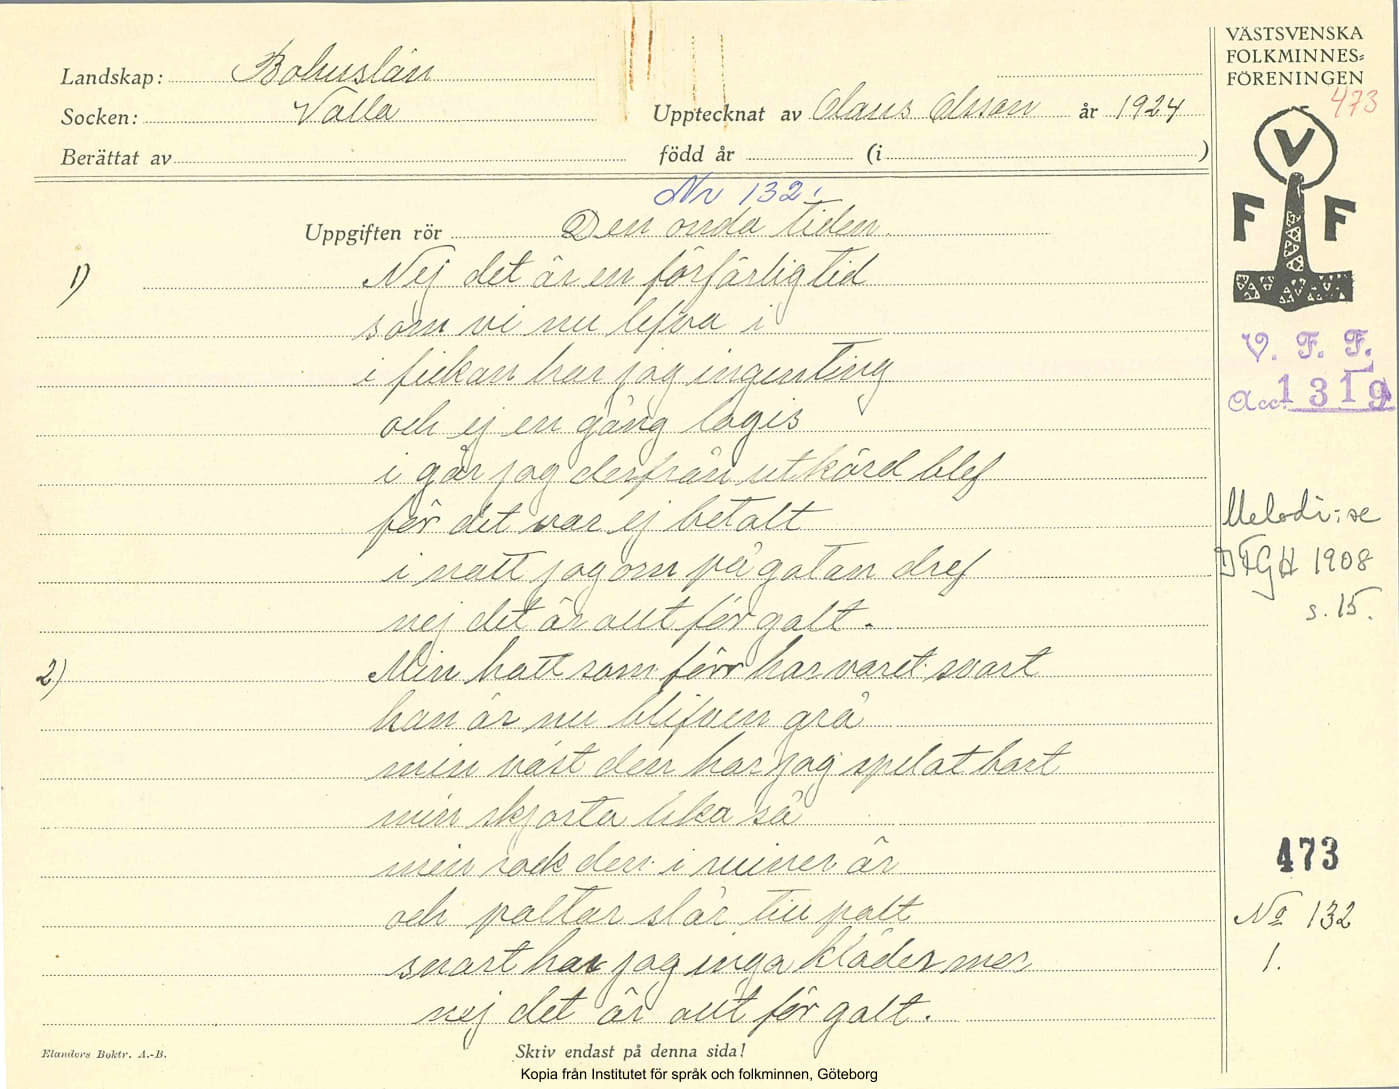 Landskap: Bohuslän
Socken: Valla
Upptecknat av Claus Olsson år 1924
Berättat av
född år (i )
VÄSTSVENSKA
FOLKMINNES=
FÖRENINGEN
473
V
F F
Nr 132.
Uppgiften rör Den onda tiden.
1) Nej det är en förfärlig tid
som vi nu lefva i
i fickan har jag ingenting
och ej en gång logis
i går jag derfrån utkörd blef
för det var ej betalt
i natt jag om på gatan dref
nej det är allt för galt.
2) Min hatt som förr har varet svart
han är nu blifven grå
min väst den har jag spelat bort
min skjorta lika så
min rock den i ruiner är
och paltar slår till palt
snart har jag inga kläder mer
nej det är allt för galt.
V. F. F.
Acc. 1319
Melodi: se
DFGH 1908
s. 15.
473
No 132
1.
Elanders Boktr. A.-B.
Skriv endast på denna sida!
Kopia från Institutet för språk och folkminnen, Göteborg